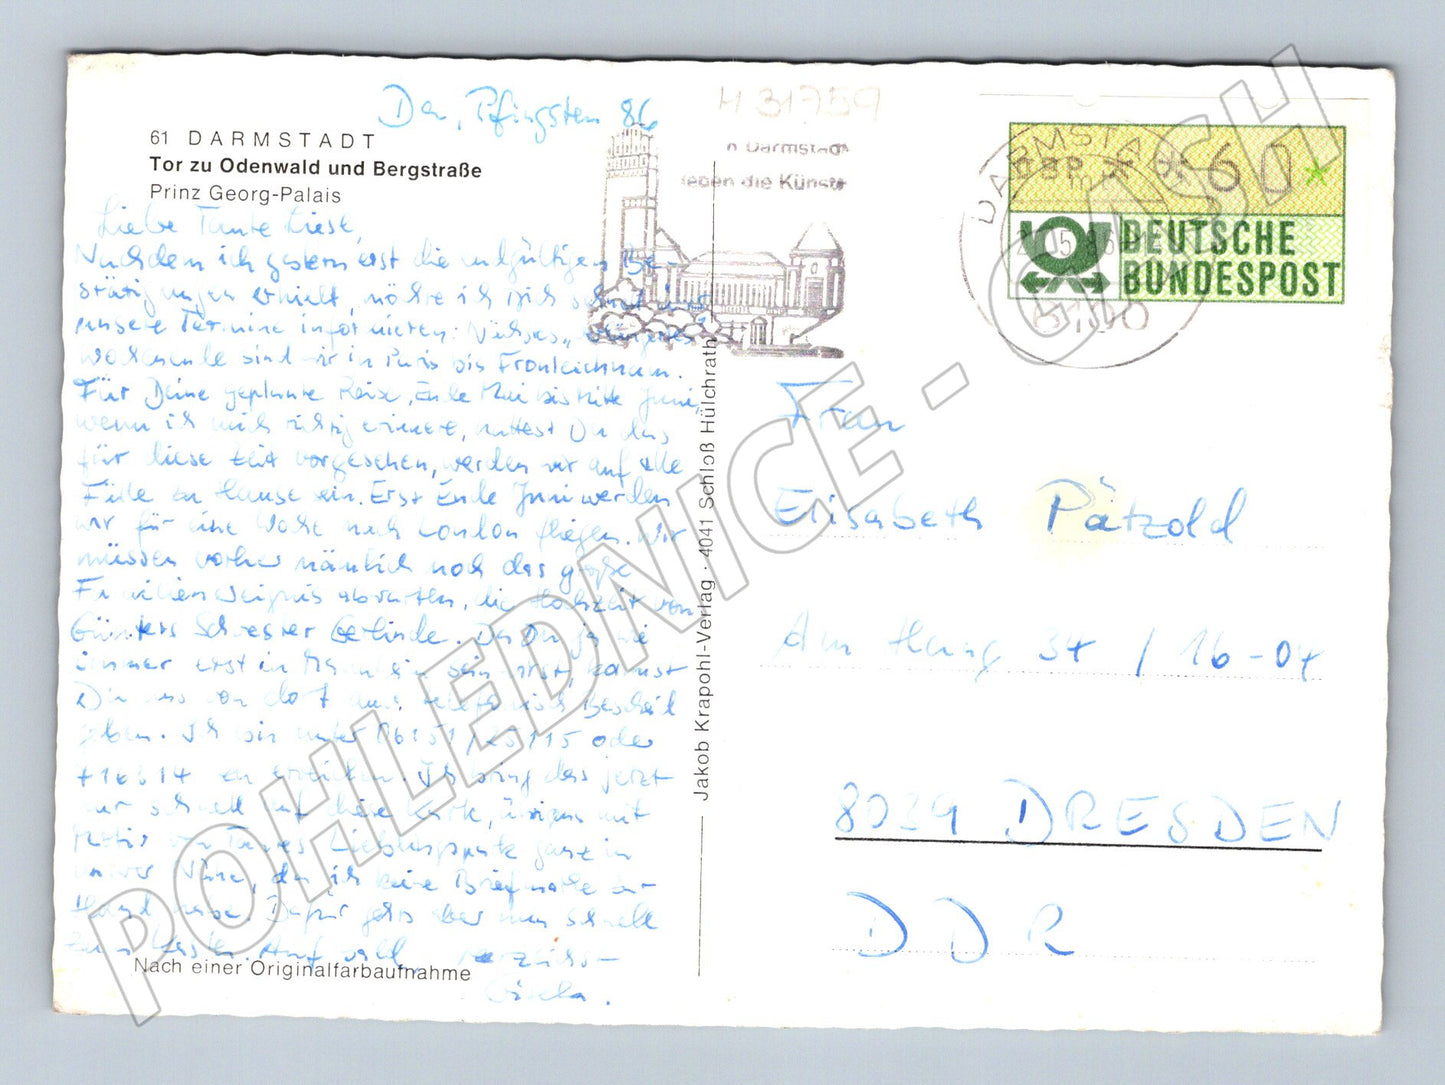 Da, Pfingsten 86
H 31759
61 DARMSTADT
Tor zu Odenwald und Bergstraße
Prinz Georg-Palais
n Darmstadt
leben die Künste
DARMSTA
DBP 60
DEUTSCHE
BUNDESPOST
6100
Liebe Tante Liesl,
Nachdem ich gestern erst die endgültigen Be-
stätigungen erhielt, möchte ich Dich schnell
unsere Termine informieren: Nächstes
wochenende sind wir in Paris bis Fronleichnam.
Für Deine geplante Reise, Ende Mai bis Mitte Juni,
wenn ich mich richtig erinnere, hattest Du das
für diese Zeit vorgesehen, werden wir auf alle
Fälle zu Hause sein. Erst Ende Juni werden
wir für eine Woche nach London fliegen. Wir
müssen vorher nämlich noch das große
Familienereignis abwarten, die Hochzeit von
Günters Schwester Gerlinde. Da Du ja wie
immer erst in Mannheim sein wirst, kannst
Du uns von dort aus telefonisch Bescheid
geben. Ich bin unter 06151/25115 oder
zu erreichen. Ich bring das jetzt
nur schnell auf diese Karte, übrigens mit
Motiv von Lieblingspark ganz in
unserer Nähe, da ich keine Briefmarke zur
Hand habe. Dafür gehts aber nun schnell
zum Kasten. Auf
Gisela.
Nach einer Originalfarbaufnahme
Jakob Krapohl-Verlag · 4041 Schloß Hülchrath
Frau
Elisabeth Pätzold
Am Hang 34 / 16-04
8039 DRESDEN
DDR
POHLEDNICE - CASH